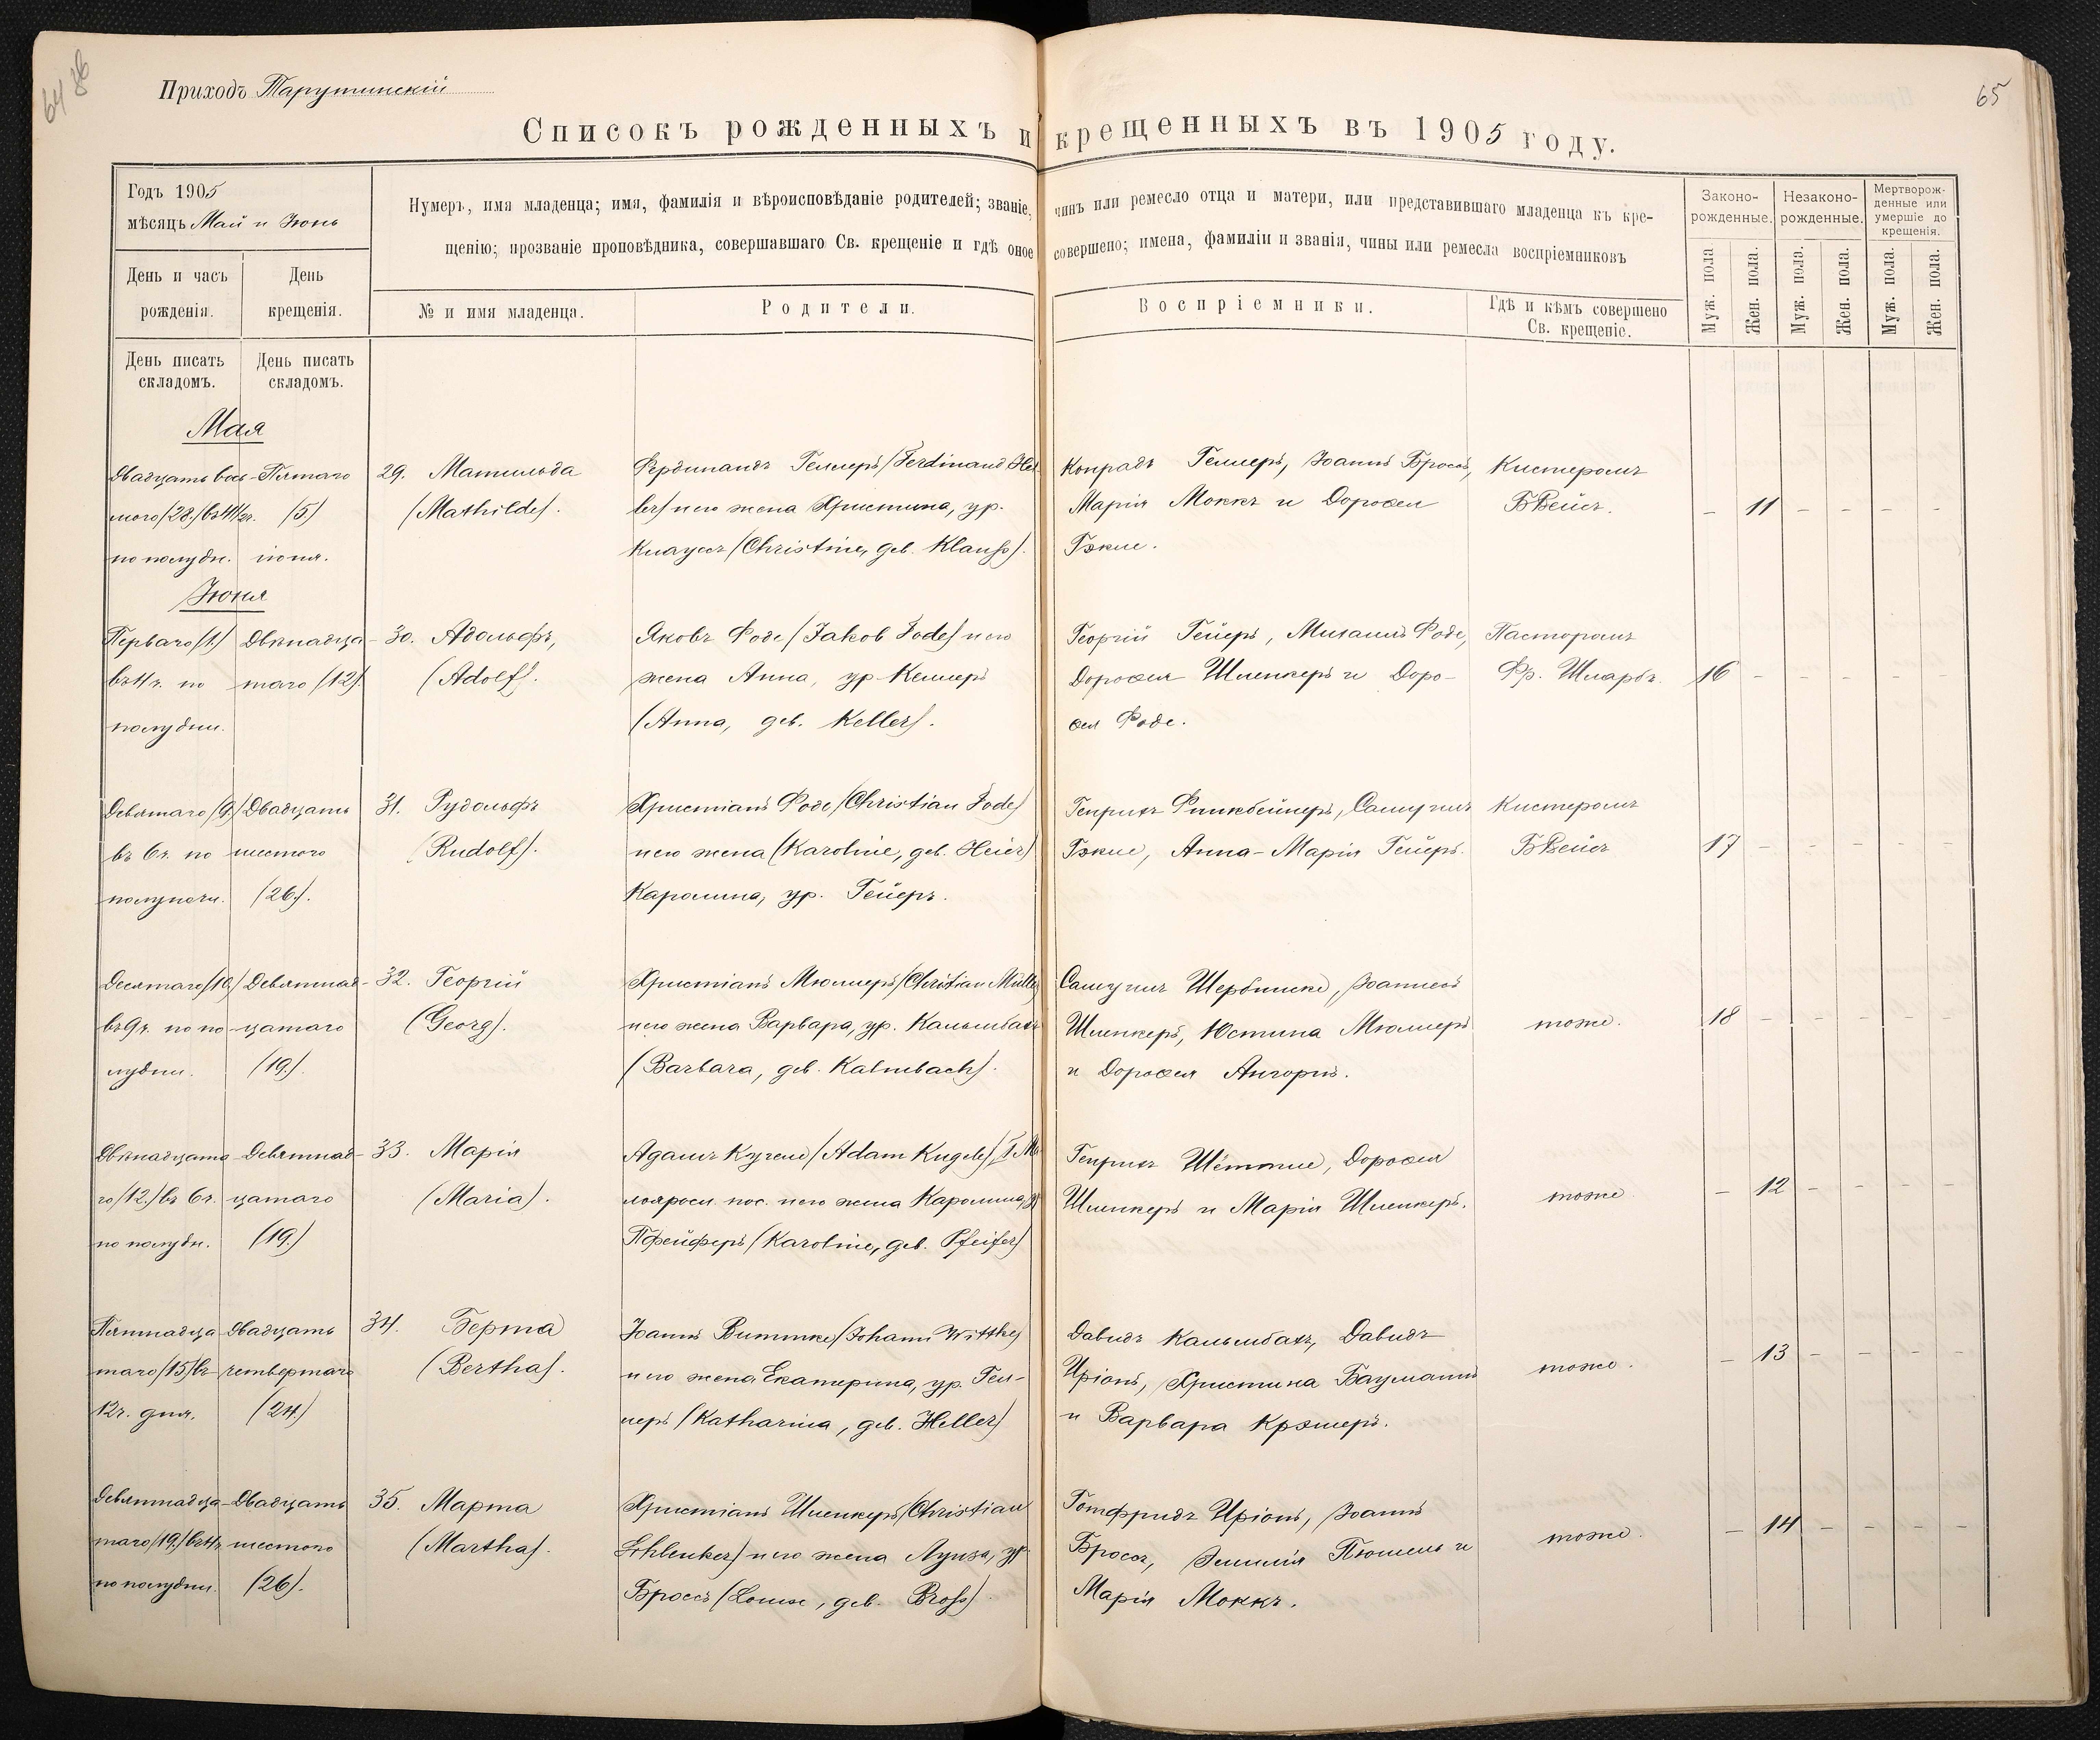 64 86
Приходъ Тарутинскій
65
Списокъ рожденныхъ и крещенныхъ въ 1905 году.
Годъ 1905
мѣсяцъ Май и Іюнь
Нумеръ, имя младенца; имя, фамилія и вѣроисповѣданіе родителей; званіе, чинъ или ремесло отца и матери, или представившаго младенца къ кре-
щенію; прозваніе проповѣдника, совершавшаго Св. крещеніе и гдѣ оное совершено; имена, фамиліи и званія, чины или ремесла воспріемниковъ
Законо-
рожденные.
Незаконо-
рожденные.
Мертворож-
денные или
умершіе до
крещенія.
День и часъ
рожденія.
День
крещенія.
№ и имя младенца.
Родители.
Воспріемники.
Гдѣ и кѣмъ совершено
Св. крещеніе.
Муж. пола
Жен. пола.
Муж. пола.
Жен. пола.
Муж. пола.
Жен. пола.
День писать
складомъ.
День писать
складомъ.
Мая
Двадцать вось- Пятаго 29. Матильда Фердинандъ Геллеръ (Ferdinand Hel- Конрадъ Геллеръ, Іоаннъ Броссъ, Кистеромъ
мого (28.) въ 4½ч. (5) (Mathilde). ler) и его жена Христина, ур. Марія Моккъ и Дорофея Б Вейсъ. - 11 - - - -
по полудн. іюня. Клаусъ (Christine, geb. Klauß). Гэкле.
Іюня
Перваго (1.) Двѣнадца- 30. Адольфъ, Яковъ Фоде (Jakob Fode) и его Георгій Гейеръ, Михаилъ Фоде, Пасторомъ
въ 4ч. по таго (12). (Adolf). жена Анна, ур Келлеръ Дорофея Шленкеръ и Доро- Фр. Шларбъ. 16 - - - - -
полудни. (Anna, geb. Keller). фея Фоде.
Девятаго (9.) Двадцать 31. Рудольфъ Христіанъ Фоде (Christian Fode) Генрихъ Финкбейнеръ, Самуилъ Кистеромъ
въ 6ч. по шестого (Rudolf). и его жена (Karoline, geb. Heier) Гэкле, Анна-Марія Гейеръ. Б Вейсъ 17 - - - - -
полуночи. (26.). Каролина, ур. Гейеръ.
Десятаго (10.) Девятнад- 32. Георгій Христіанъ Мюллеръ (Christian Müller) Самуилъ Іоаннесъ
въ 9ч. по по- цатаго (Georg). и его жена Варвара, ур. Кальмбахъ Шленкеръ, Юстина Мюллеръ тоже. 18 - - - - -
лудни. (19.). (Barbara, geb. Kalmbach). и Дорофея
Двѣнадцата- Девятнад- 33. Марія Адамъ Кугеле (Adam Kugele), I Ма- Генрихъ Шёттле, Дорофея
го (12.) въ 6ч. цатаго (Maria). лоярослав. пос. и его жена Каролина, ур Шленкеръ и Марія Шленкеръ. тоже - 12 - - - -
по полудн. (19.) Пфейферъ (Karoline, geb. Pfeifer)
Пятнадца- Двадцать 34. Берта Іоаннъ Виттке (Johann Wittke) Давидъ Кальмбахъ, Давидъ
таго (15) въ четвертаго (Bertha). и его жена Екатерина, ур. Гел- Иріонъ, Христина Бауманнъ тоже. - 13 - - - -
12ч. дня. (24.) леръ (Katharina, geb. Heller) и Варвара Крэмеръ.
Девятнадца- Двадцать 35. Марта Христіанъ Шленкеръ (Christian Готфридъ Иріонъ, Іоаннъ
таго (19.) въ 4ч. шестого (Martha). Schlenker) и его жена Луиза, ур. Броссъ, Эмилія и тоже. - 14 - - - -
по полудни. (26). Броссъ (Louise, geb. Broß). Марія Моккъ.